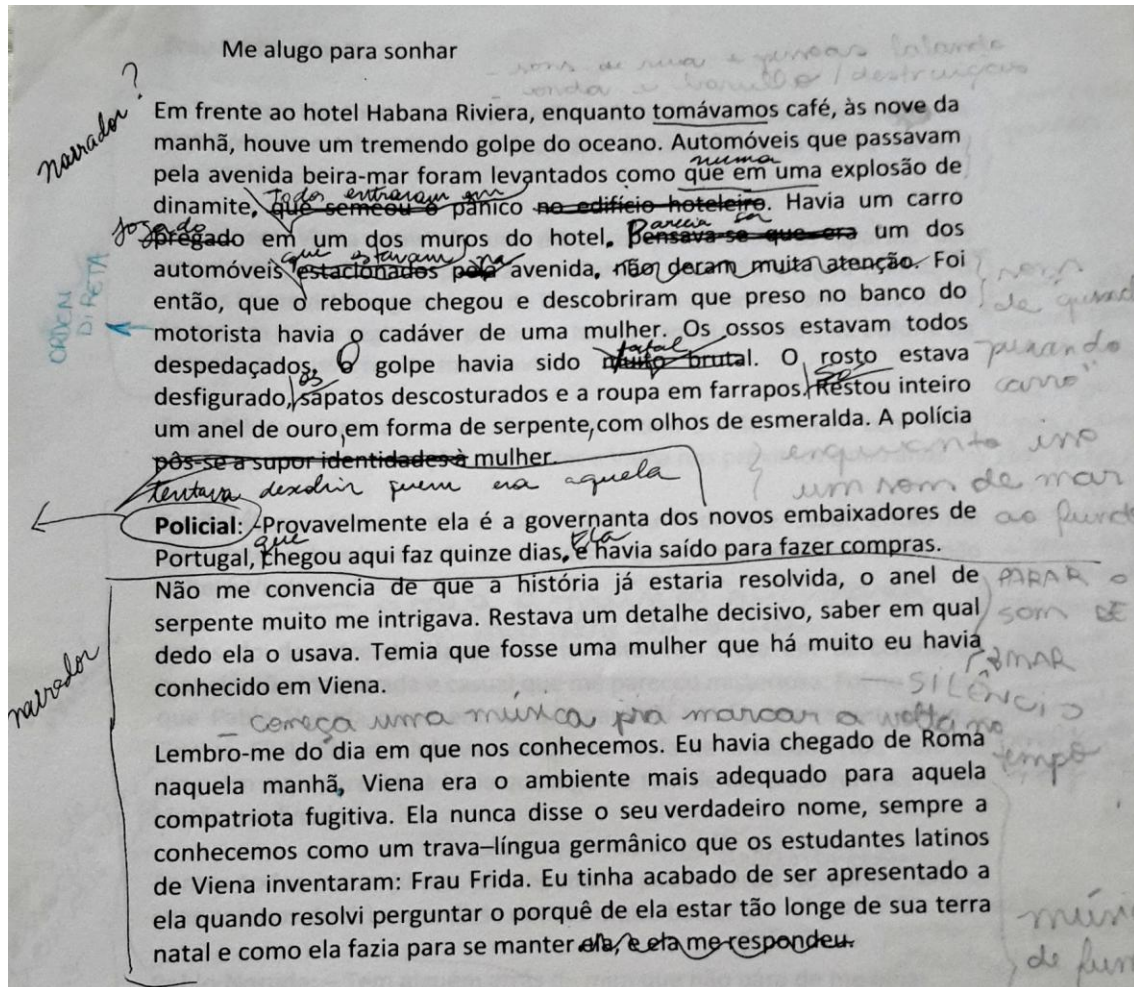 Me alugo para sonhar
- sons de rua e pessoas falando
onda e barulho / destruição
narrador?
Em frente ao hotel Habana Riviera, enquanto tomávamos café, às nove da
manhã, houve um tremendo golpe do oceano. Automóveis que passavam
numa
pela avenida beira-mar foram levantados como que em uma explosão de
Todos entraram em
dinamite, que semeou o pânico no edifício hoteleiro. Havia um carro
jogado
parecia ser
pregado em um dos muros do hotel, pensava-se que era um dos
que estavam na
automóveis estacionados pela avenida, não deram muita atenção. Foi
então, que o reboque chegou e descobriram que preso no banco do
ORDEM
DIRETA
motorista havia o cadáver de uma mulher. Os ossos estavam todos
fatal
despedaçados, o golpe havia sido muito brutal. O rosto estava
os
só
desfigurado, sapatos descosturados e a roupa em farrapos. Restou inteiro
um anel de ouro, em forma de serpente, com olhos de esmeralda. A polícia
pôs-se a supor identidades à mulher.
tentava descobrir quem era aquela
som
de
carro"
enquanto isso
um som de mar
ao fundo
Policial: -Provavelmente ela é a governanta dos novos embaixadores de
que
Ela
Portugal, chegou aqui faz quinze dias, e havia saído para fazer compras.
narrador
Não me convencia de que a história já estaria resolvida, o anel de
serpente muito me intrigava. Restava um detalhe decisivo, saber em qual
dedo ela o usava. Temia que fosse uma mulher que há muito eu havia
conhecido em Viena.
PARAR o
som DE
MAR
- SILÊNCIO
- começa uma música pra marcar a volta no
tempo
Lembro-me do dia em que nos conhecemos. Eu havia chegado de Roma
naquela manhã, Viena era o ambiente mais adequado para aquela
compatriota fugitiva. Ela nunca disse o seu verdadeiro nome, sempre a
conhecemos como um trava–língua germânico que os estudantes latinos
de Viena inventaram: Frau Frida. Eu tinha acabado de ser apresentado a
ela quando resolvi perguntar o porquê de ela estar tão longe de sua terra
natal e como ela fazia para se manter ela, e ela me respondeu.
de